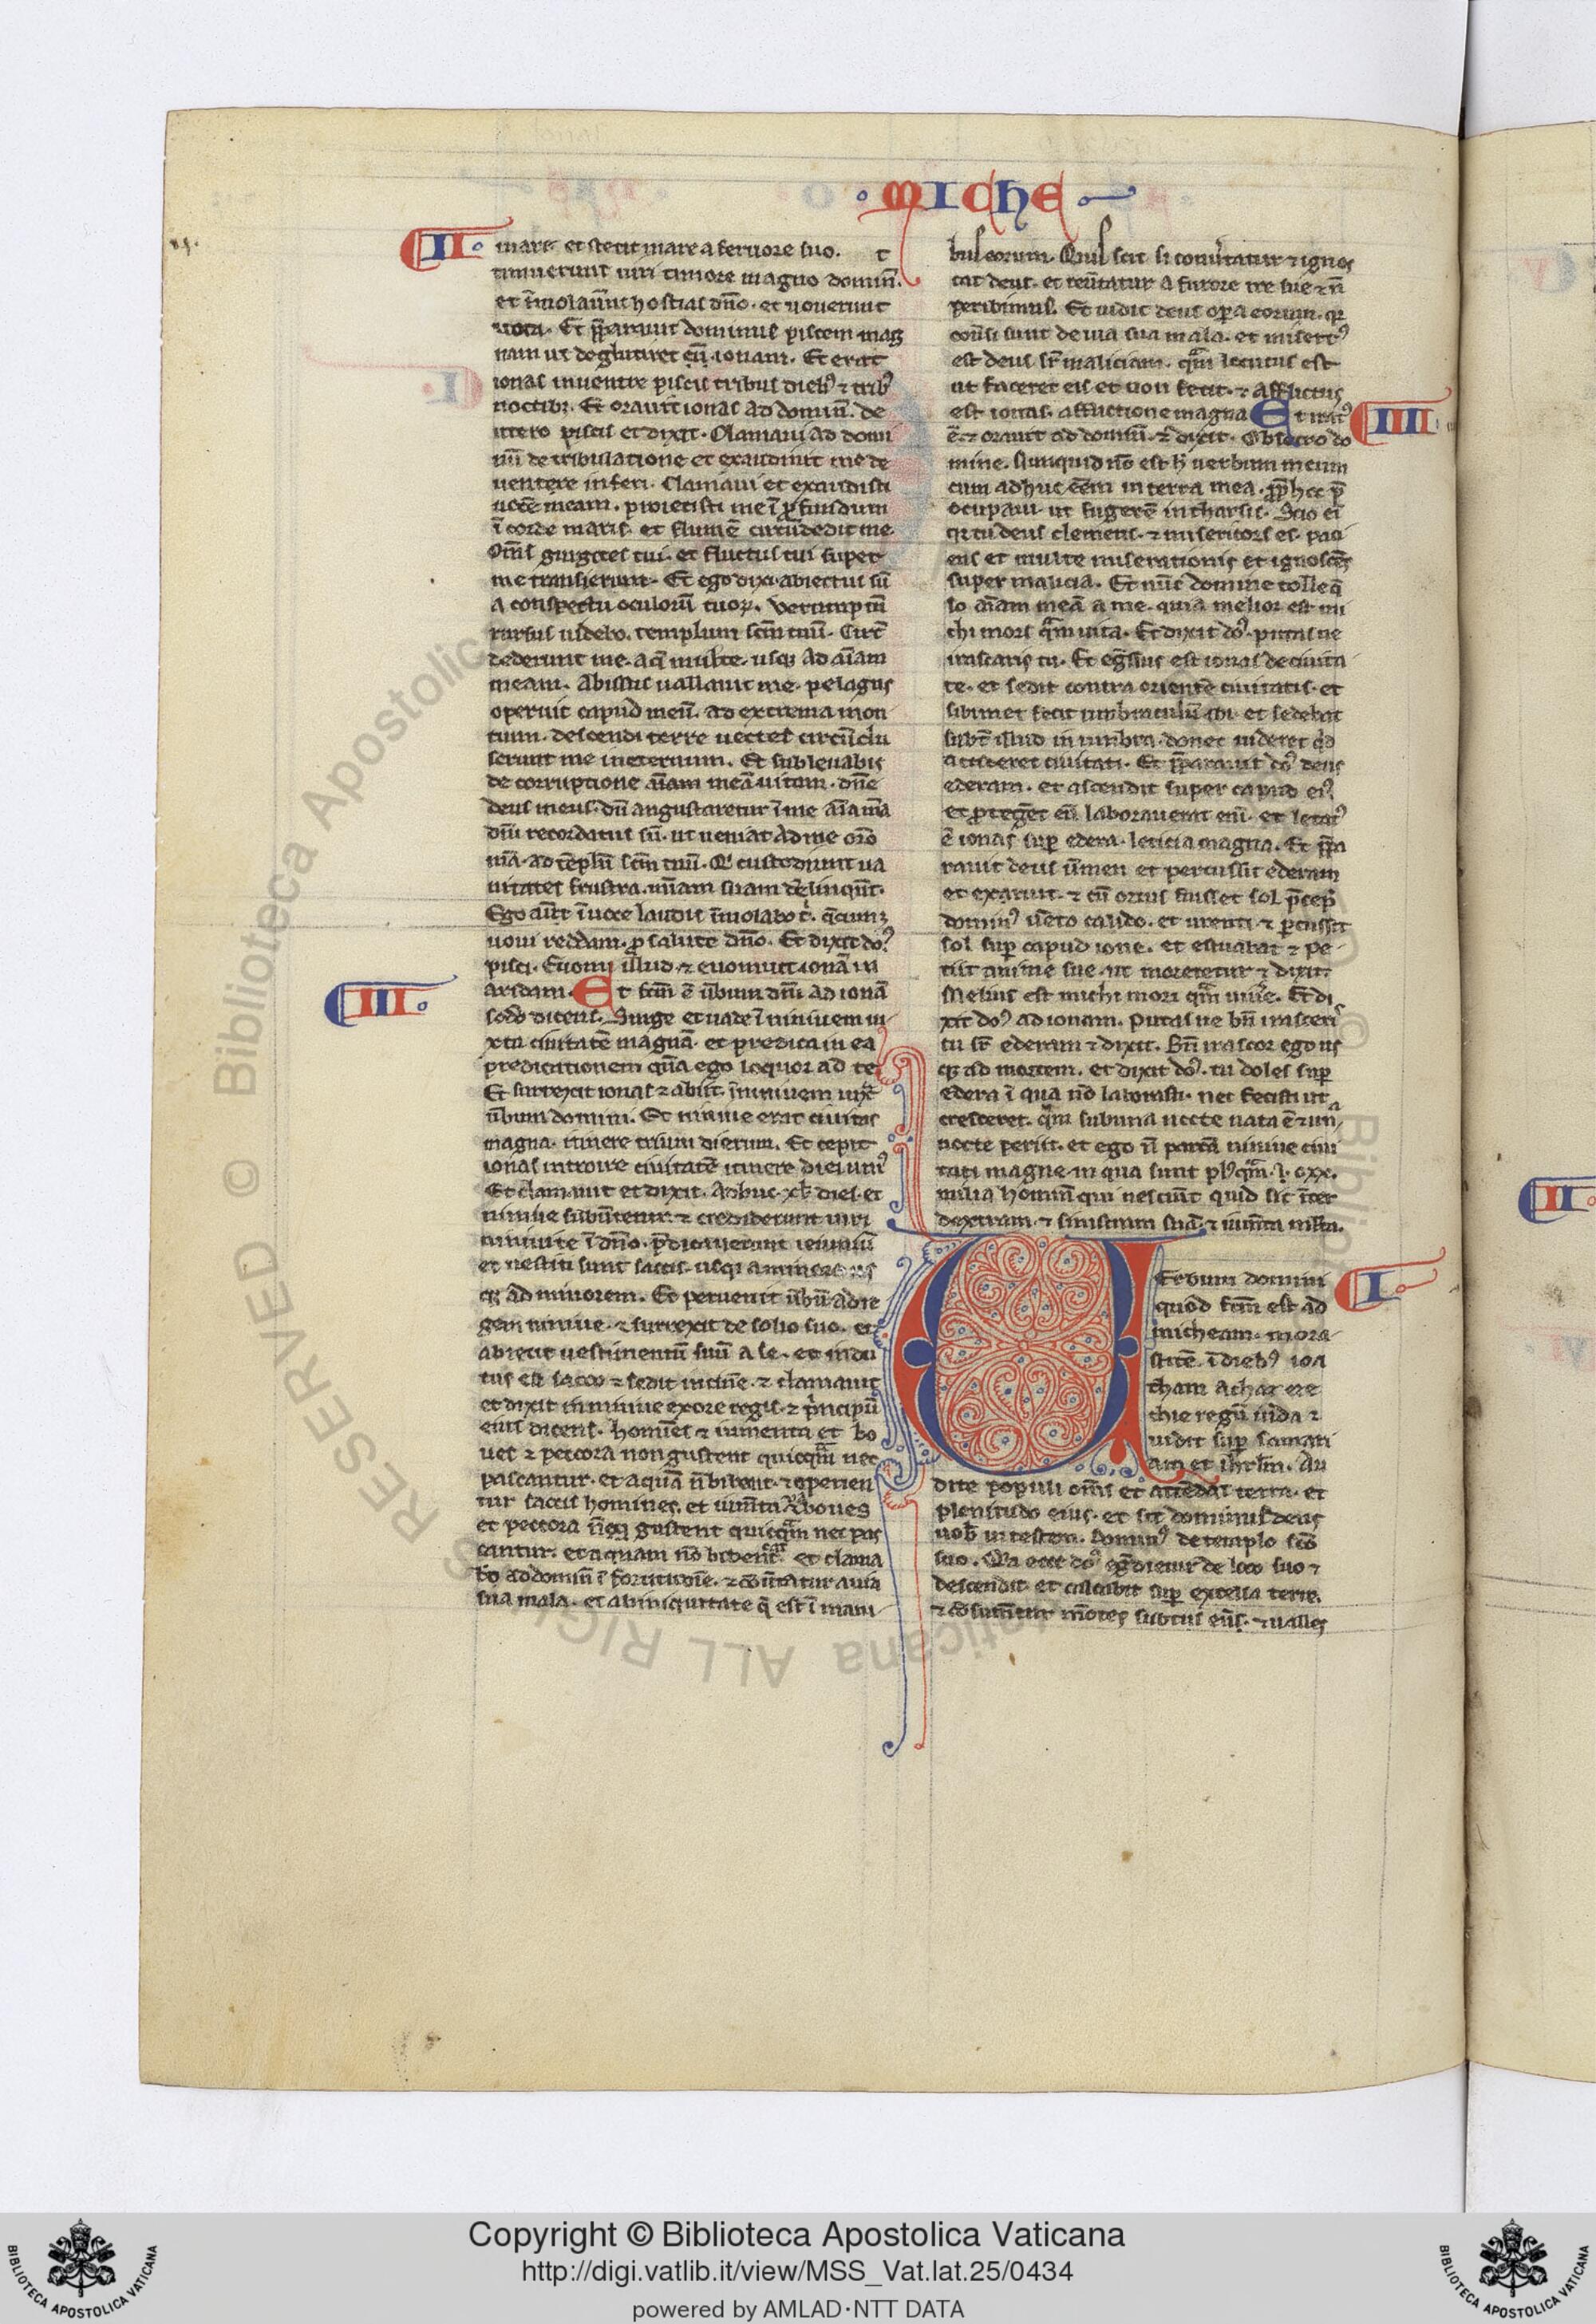 MICHE
II
mare. et stetit mare a feruore suo. t
timuerunt uiri timore magno dominū.
et īmolauerūt hostias dn̄o. et uouerunt
uota. Et p̄parauit dominus piscem mag
num ut deglutiret eū ionam. Et erat
ionas in uentre piscis tribus dieb; ⁊ trib;
noctib;. Et orauit ionas ad dominū. de
utero piscis et dixit. Clamaui ad domi
nū de tribulatione et exaudiuit me de
uentere inferi. Clamaui et exaudisti
uocē meam. proiecisti me ī profundum
ī corde maris. et flumē circūdedit me.
Om̄s gurgites tui. et fluctus tui super
me transierunt. Et ego dixi abiectus sū
a conspectu oculorū tuoꝝ. verump tn̄
rursus uidebo. templum scm̄ tuū. Circū
dederunt me. aq̄ multe. usq; ad aīam
meam. Abissus uallauit me. pelagus
operuit capud meū. ad extrema mon
tium. descendi terre uectes circūclu
serunt me in eternum. Et subleuabis
de corruptione aīam meā uitam. dn̄e
deus meus. dū angustaretur ī me aīa mā
dn̄i recordatus sū. ut ueniat ad me orō
mā. ad tēplū scm̄ tuū. Qi custodiunt ua
nitates frustra. mīam suam dēlinquūt.
Ego aūt ī uoce laudis īmolabo t̄. q̄cumq;
uoui reddam. pro salute dn̄o. Et dixit do᷒
pisci. Euomi illud. ⁊ euomuit ionā in
aridam. Et fcm̄ ē ūbum dn̄i ad ionā
III
sc̄do dicens. Surge et uade ī niniuem iu
xta ciuitatē magnā. et predica in ea
predicationem quā ego loquor ad te
Et surrexit ionas ⁊ abiit. ī niniuem iuxᵃ
ūbum domini. Et niniue erat ciuitas
magna. itinere trium dierum. Et cepit
ionas introire ciuitatē itinere diei uni᷒
Et clamauit et dixit. Adhuc. xl. dies. et
niniue subūtetur. ⁊ crediderunt uiri
niniuite ī dn̄o. p̄dicauerunt ieiuniū
et uestiti sunt saccis. usq; a minore us
q; ad minorem. Et peruenit ūbū ad re
gem niniue. ⁊ surrexit de solio suo. et
abiecit uestimentū suū a se. et indu
tus est sacco ⁊ sedit in cinē. ⁊ clamauit
et dixit in niniue ex ore regis. ⁊ principū
eius dicens. homīes ⁊ iumenta et bo
ues ⁊ peccora non gustent quicqm̄ nec
pascantur. et aquā n̄ bibent. ⁊ operien
tur saccis homines. et iumēta ⁊ boues
et peccora n̄eq; gustent quicqm̄ nec pas
cantur. et aquam nō bibent. et clama
bo ad dominū ī fortitudīe. ⁊ cōūtatur a uia
sua mala. et ab iniquitate q̄ est ī mani
bus eorum. Quis scit si conūtatur ⁊ ignos
cat deus. et reūtatur a furore ire sue ⁊ n̄
peribimus. Et uidit deus opera eorum. qr̄
cōūsi sunt de uia sua mala. et misert᷒
est deus sr̄ maliciam. qm̄ locutus est
ut faceret eis et non fecit. ⁊ afflictus
est ionas. afflictione magna Et irat᷒
IIII
ē ⁊ orauit ad dominū. ⁊ dixit. Obsecro do
mine. Nunquid nō est h̄ uerbum meum
cum adhuc eēm in terra mea. pp̄ hec p̄
ocupaui. ut fugerē in tharsis. Scio ei
q̄ tu deus clemens. ⁊ misericors es. paci
ens et multe miserationis et ignoscēs
super malicia. Et nūc domine tolle q̄
so aīam meā a me. quia melior est mi
chi mors qm̄ uita. Et dixit do᷒. putas ne
irascaris tu. Et egr̄ssus est ionas de ciuita
te. et sedit contra orientē ciuitatis. et
sibimet fecit umbraculū ibi. et sedebat
subt̄ illud in umbra. donec uideret qͥd
accideret ciuitati. Et p̄parauit do᷒ deus
ederam. et ascendit super capud ei᷒
et protegēt eū laborauerat enī. et letat᷒
ē ionas sup̄ edera. leticia magna. Et p̄pa
rauit deus ūmen et percussit ederam
et exaruit. ⁊ cū ortus fuisset sol p̄cep̄
domin᷒ uēto calido. et urenti ⁊ percussit
sol sup̄ capud ione. et estuabat ⁊ pe
tiit anime sue. ut moreretur ⁊ dixit.
Melius est michi mori qm̄ uiūe. Et di
xit do᷒ ad ionam. Putas ne bn̄ irasceris
tu sr̄ ederam ⁊ dixit. Bn̄ irascor ego us
q; ad mortem. et dixit do᷒. tu doles sup̄
edera ī qua nō laborasti. nec fecisti ut
cresceret. qm̄ sub una nocte nata ē ⁊ unᵃ
nocte periit. et ego n̄ parcā niniue ciui
tati magne in qua sunt pl᷒ qm̄. c. xx.
milia hominū qui nesciūt quid sit īter
dextram. ⁊ sinistram suā. ⁊ iumēta m̄lta.
Verbum domini
I
quod fcm̄ est ad
micheam. mora
stitē. ī dieb; ioa
tham achaz eze
chie regū iuda ⁊
uidit sup̄ samari
am et ihrlm̄. Au
dite populi om̄s et attēdat terra. et
plenitudo eius. et sit dominus deus
uob̄ in testem. Domin᷒ de templo scō
suo. Qa ecce do᷒ egr̄dietur de loco suo ⁊
descendit. et calcabit sup̄ excelsa terre.
⁊ cōsumētur mōtes subtus eū. ⁊ ualles
II
Copyright © Biblioteca Apostolica Vaticana
http://digi.vatlib.it/view/MSS_Vat.lat.25/0434
powered by AMLAD·NTT DATA
BIBLIOTECA APOSTOLICA VATICANA
BIBLIOTECA APOSTOLICA VATICANA